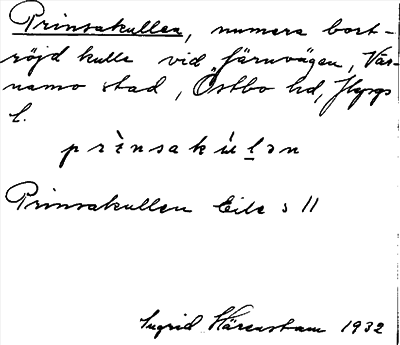 Prinsakullen, numera bort-
röjd kulle vid järnvägen, Vär-
namo stad, Östbo hd,
l.
prìnsakúlən
Prinsakullen Eile s 11
Ingrid Härenstam 1932